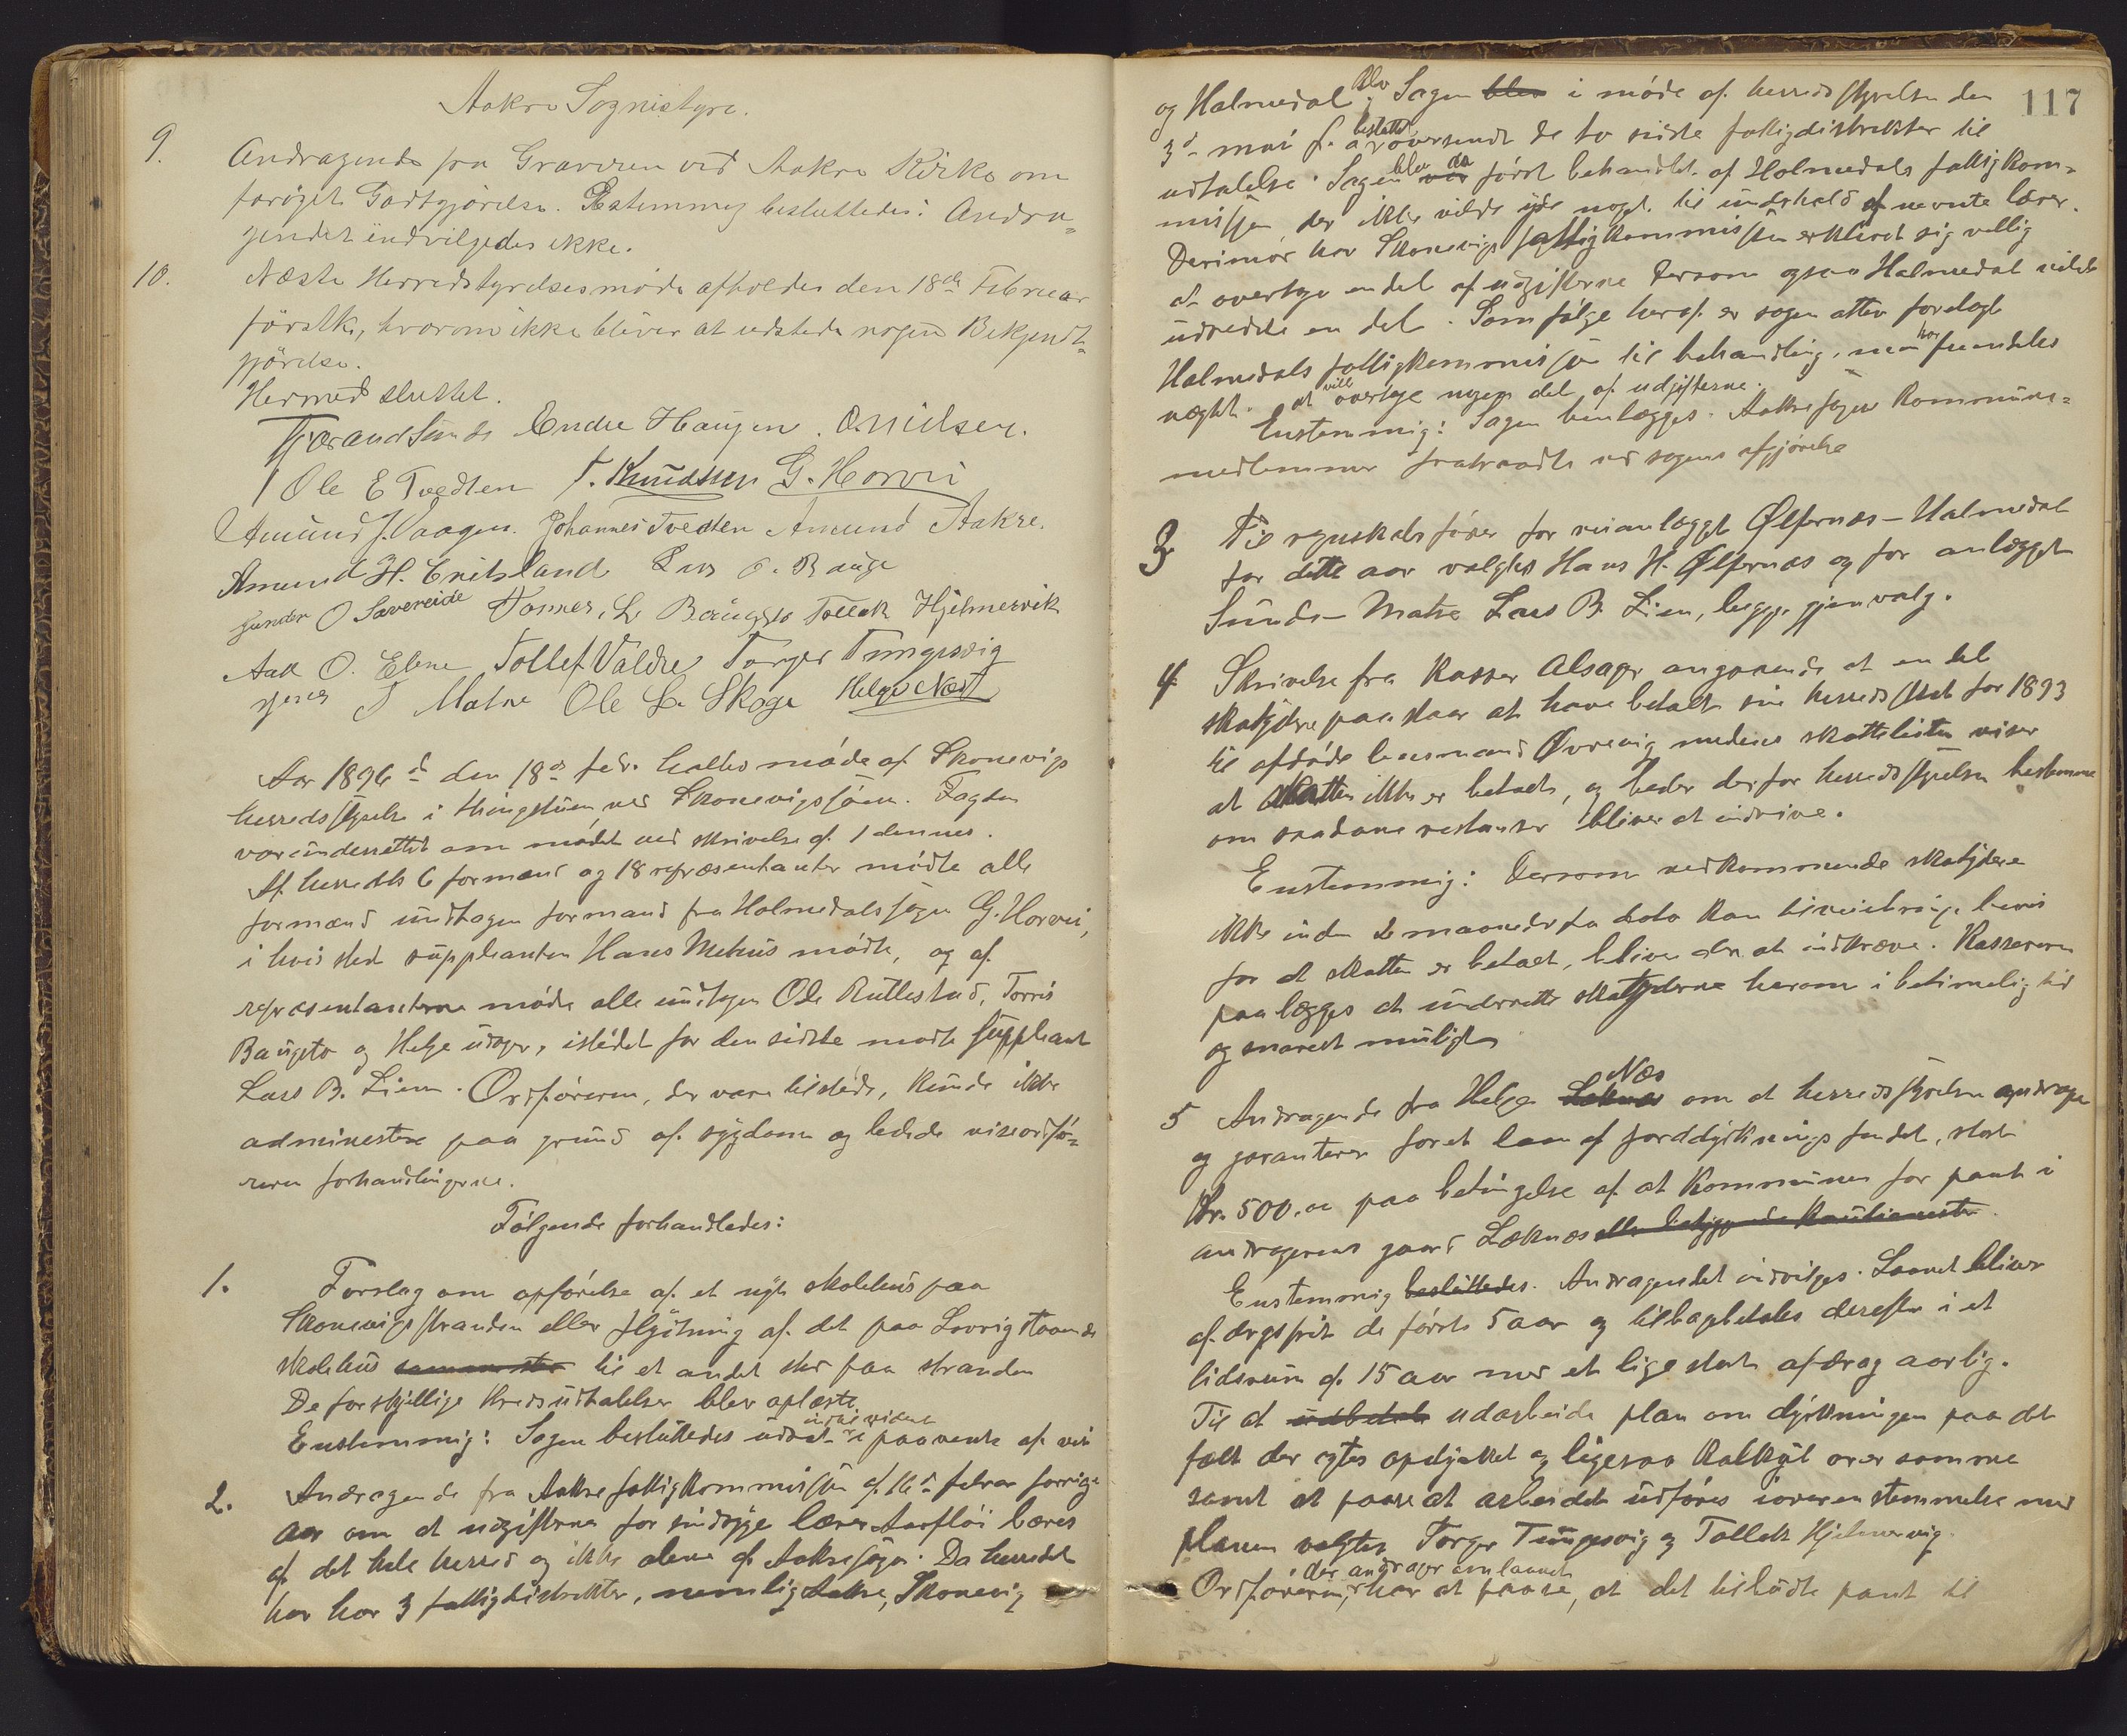 Aakre Sognestyre.
9. Andragende fra Graveren ved Aakre Kirke om
forøget Godtgjørelse. Enstemmig besluttedes: Andra=
gendet indvilgedes ikke.
10. Næste Herredstyrelsesmøde afholdes den 18de Februar
førstk., hvorom ikke bliver at udstede nogen Bekjendt=
gjørelse.
Hermed sluttet.
Tjerand Sunde Endre Haugen. O. Nielsen.
Ole E Tvedten T. Knudssen G. Horvei
Amund J. Vaagen. Johannes Tvedten Amund Aakre.
Amund H. Eritsland Lars O. Bauge
Gunder O Sævereide Tonnes. L. Baugsto Tollak Hjelmervik
Aad O. Ebne Tollef Valdre Torger Tungesvig
S Matre Ole L. Skoge Helge Næs
Aar 1896 d den 18de febr. holtes møde af Skonevigs
herredsstyrelse i thingstuen ved Skonevigsjøen. Fogden
var underrettet om mødet ved skrivelse af 1 dennes.
Af herredets 6 formænd og 18 repræsentanter mødte alle
formænd undtagen formand fra Holmedals sogn G. Horvei,
i hvis sted suppleanten Hans Mehus mødte, og af
repræsentanterne mødte alle undtagen Ole Rullestad, Torris
Baugsto og Helge, istedet for den sidste mødte suppleant
Lars B. Lien. Ordføreren, der var tilstede, kunde ikke
administere paa grund af sygdom og ledede viseordfø=
reren forhandlingerne.
Følgende forhandledes:
1. Forslag om opførelse af et nyt skolehus paa
Skonevigsstranden eller flytning af det paa Lovrig staaende
skolehus til et andet sted paa stranden
De forskjellige kredsudtalelser blev oplæste.
Enstemmig: Sagen besluttedes udsat paavente af
2. Andragende fra Aakre fattigkommission af 16de febrar forrige
aar om at udgifterne for sindsyge lærer Aarfløi bæres
af det hele herred og ikke alene af Aakre sogn. Da herredet
her har 3 fattigdistrikter, nemlig Aakre, Skonevig
117
og Holmedal blev Sagen blev i møde af herredsstyrelsen den
3de mai f. a. besluttet oversendt de to sidste fattigdistrikter til
udtalelse. Sagen blev da først behandlet af Holmedals fattigkom=
mission, der ikke vilde yde noget til underhold af nevnte lærer.
Derimod har Skonevigs fattigkommission erklæret sig villig
at overtage endel af udgifterne dersom ogsaa Holmedal vilde
udrede en del. Som følge heraf er sagen atter forelagt
Holmedals fattigkommission til behandling, men har fremdeles
nægtet at ville overtage nogen del af udgifterne.
Enstemmig: Sagen henlægges. Aakre sogns kommune=
medlemmer fratraadte ved sagens afgjørelse
3 Til regnskabsfører for veianlægget Ølfernæs – Holmedal
for dette aar valgtes Hans H. Ølfernæs og for anlægget
Sunde – Matre Lars B. Lien, begge gjenvalg.
4 Skrivelse fra kasser Alsager angaaende at en del
skatydere paastaar at have betalt sin herredsskat for 1893
til afdøde lensmand Øvrevig medens skattelisten viser
at skatten ikke er betalt, og beder derfor herredsstyrelsen bestemme
om saadane restanser bliver at inddrive.
Enstemmig: Dersom vedkommende skatydere
ikke inden 2 maaneder fra dato kan tilveiebringe bevis
for at skatten er betalt, bliver den at indkræve. Kasseren
paalægges at underrette skatyderne herom i betimelig tid
og snarest muligt
5 Andragende fra Helge Næs om at herredsstyrelsen andrage
og garanterer for et laan af jorddyrknings fondet, stort
kr. 500.00 paa betingelse af at kommunen for pant i
andragerens gaard Løknæs eller betryggende kautionister.
Enstemmig besluttedes. Andragendet indvilges. Laanet bliver
afdragsfrit de første 5 aar og tilbagebetales derefter i et
tidsrum af 15 aar med et lige stort afdrag aarlig.
Til at udarbeide plan om dyrkningen paa det
felt der agtes opdyrket og ligesaa kalkyl over samme
samt at paase at arbeidet udføres i overenstemmelse med
planen valgtes Torger Tungesvig og Tollak Hjelmervig.
Ordføreren, der andrager om laanet har at paase, at det tilbudte pant til